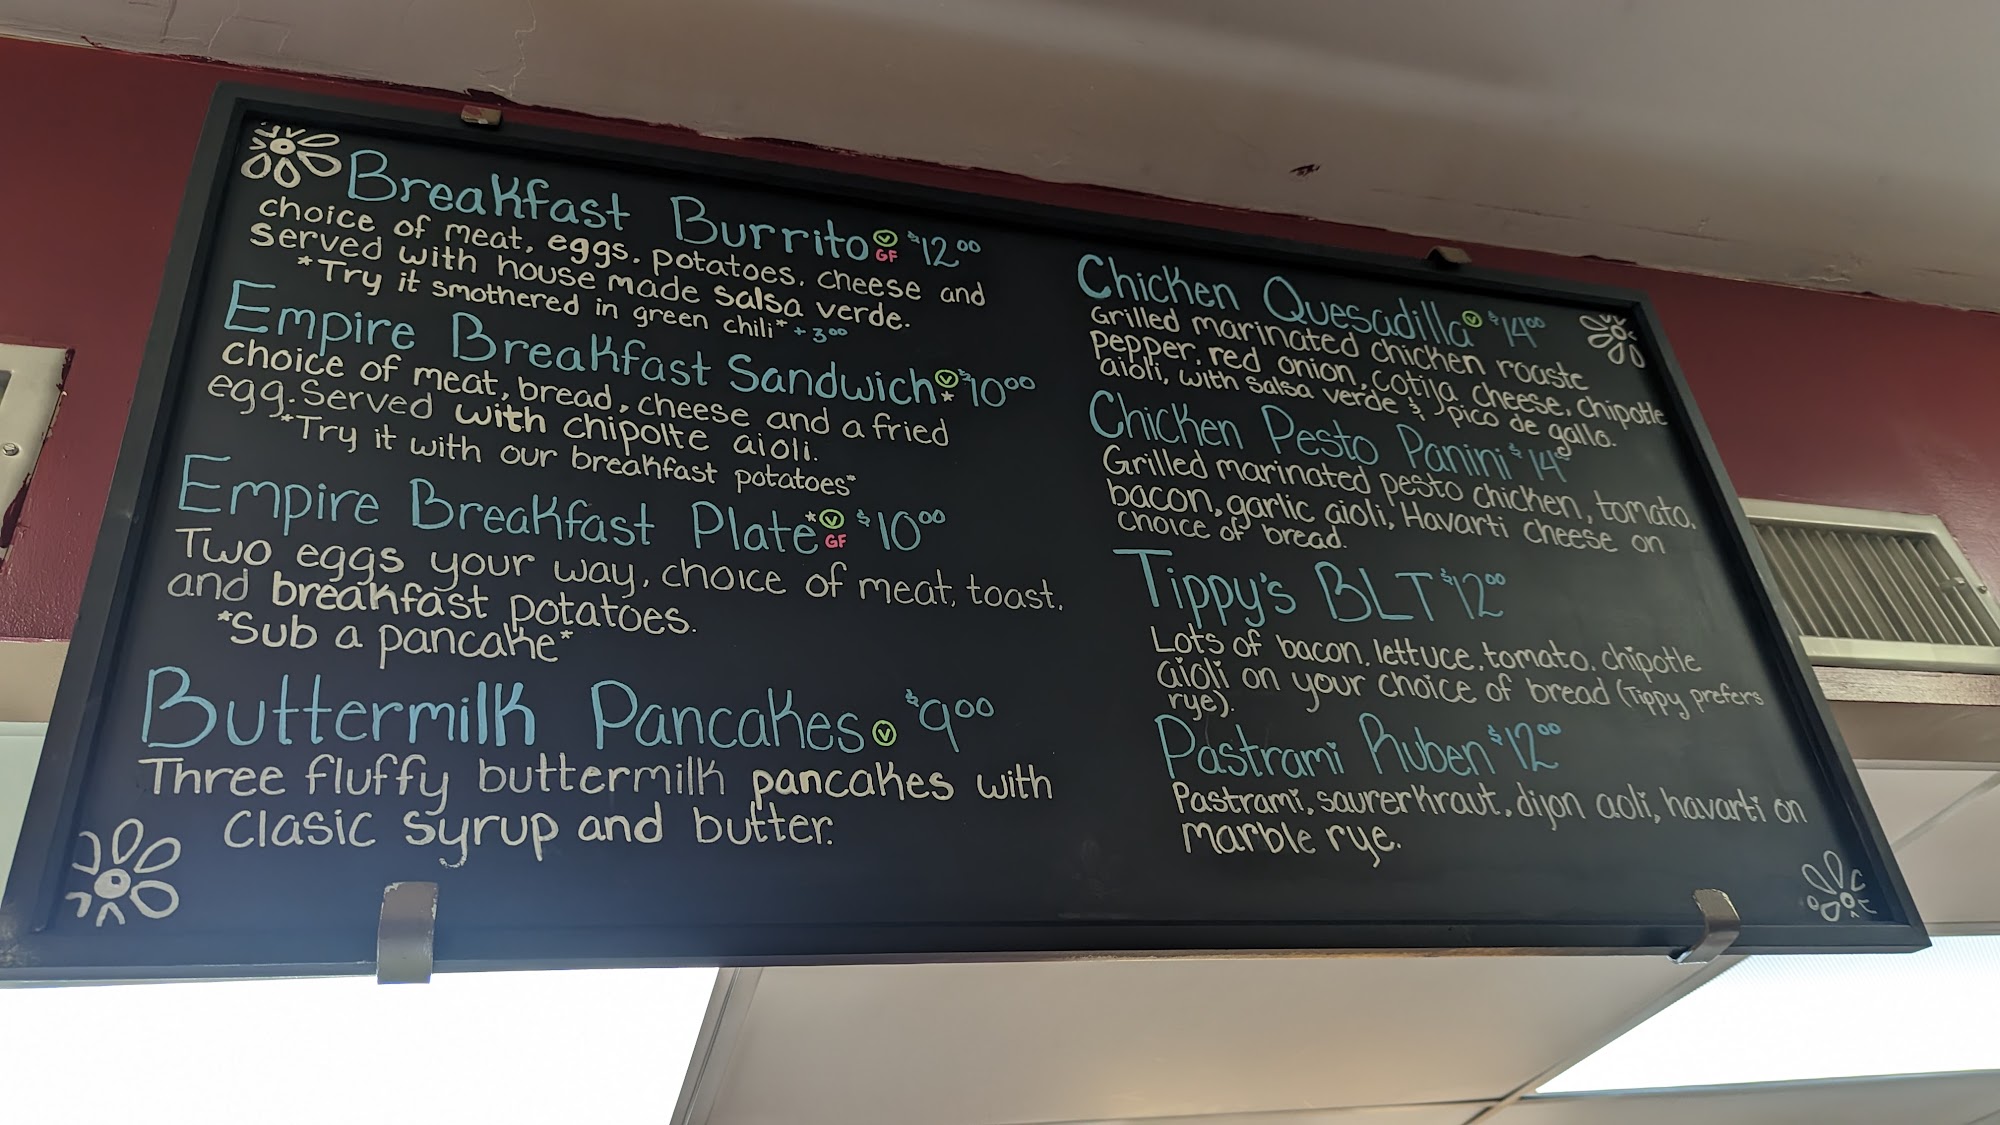 Breakfast Burrito V GF $12.00
choice of meat, eggs, potatoes, cheese and
served with house made salsa verde.
*Try it smothered in green chili* + 3.00
Empire Breakfast Sandwich V * $10.00
choice of meat, bread, cheese and a fried
egg. Served with chipolte aioli.
*Try it with our breakfast potatoes*
Empire Breakfast Plate * V GF $10.00
Two eggs your way, choice of meat, toast,
and breakfast potatoes.
*Sub a pancake*
Buttermilk Pancakes V $9.00
Three fluffy buttermilk pancakes with
clasic syrup and butter.
Chicken Quesadilla V $14.00
Grilled marinated chicken roaste
pepper, red onion, cotija cheese, chipotle
aioli, with salsa verde & pico de gallo.
Chicken Pesto Panini $14.00
Grilled marinated pesto chicken, tomato,
bacon, garlic aioli, Havarti cheese on
choice of bread.
Tippy's BLT $12.00
Lots of bacon, lettuce, tomato, chipotle
aioli on your choice of bread (Tippy prefers
rye).
Pastrami Ruben $12.00
Pastrami, saurerkraut, dijon aoli, havarti on
marble rye.